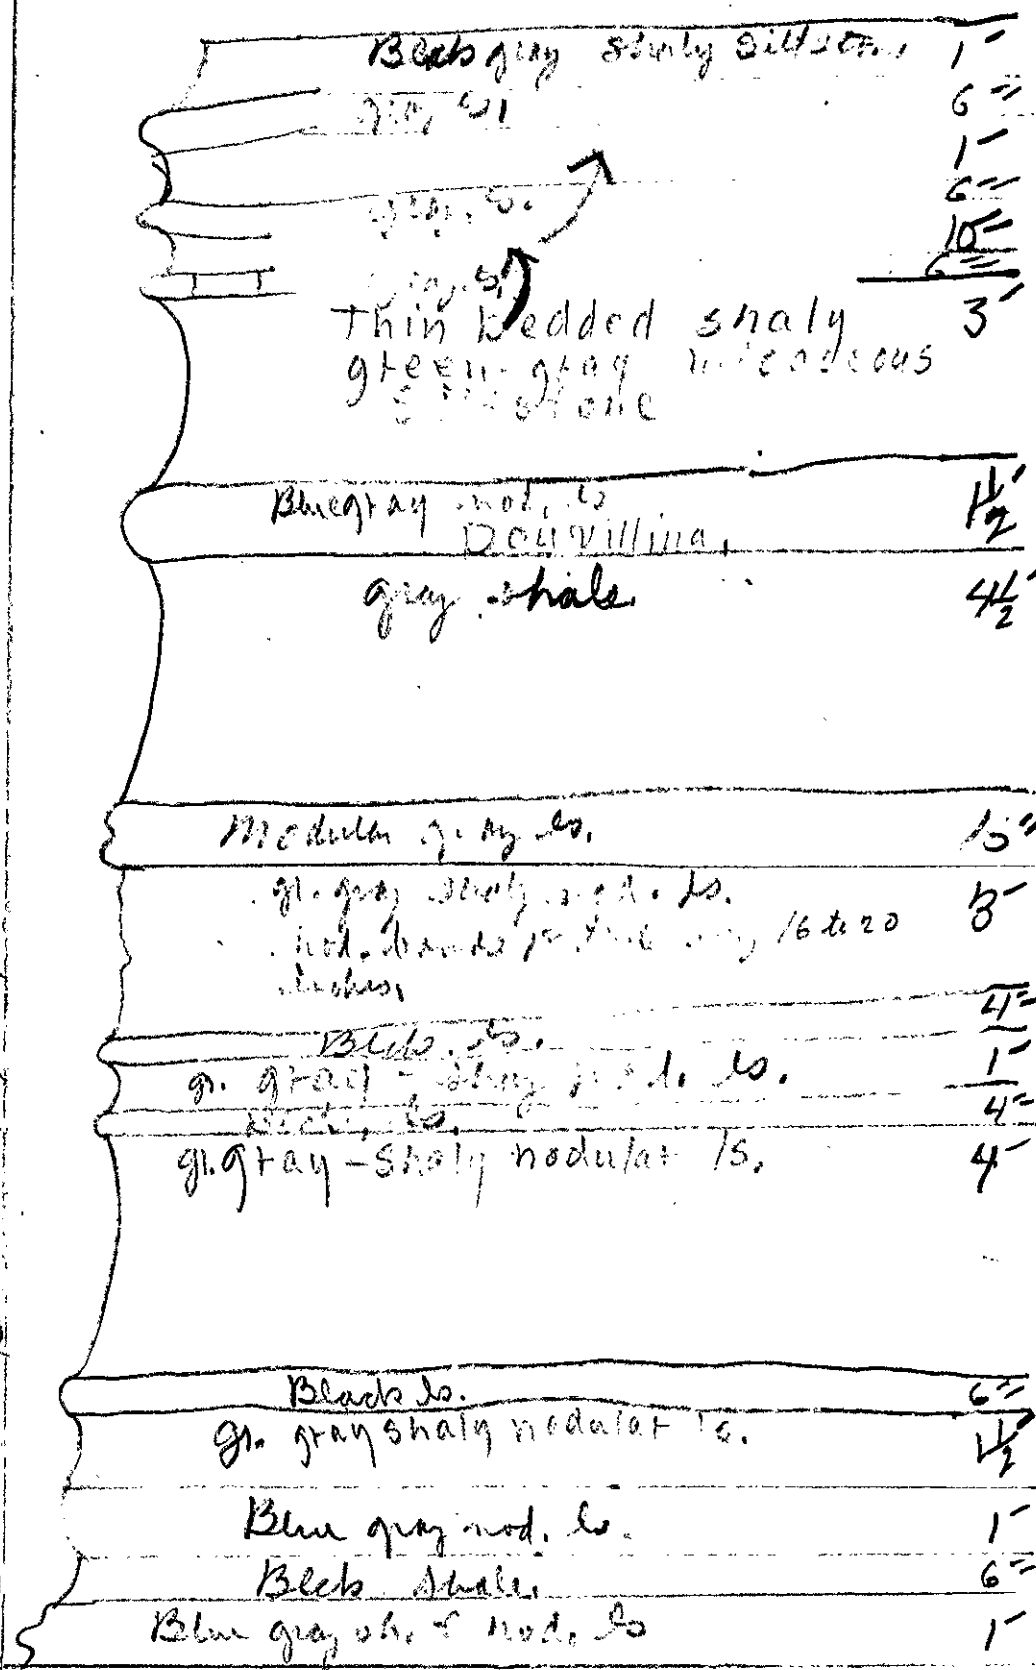 Black gray shaly siltston, 1'
gray, ls 6"
1'
gray, ls. 6"
10"
gray, ls, 6"
Thin bedded shaly 3'
green-gray micaceous
siltstone
Bluegray nod, ls 1½'
Douvillina,
gray shale 4½'
Nodular gray ls. 15"
gr. gray shaly nod. ls. 3'
nod. bands 16 to 20
inches.
4"
Black. ls.
gr. gray - shaly nod. ls. 1'
Black, ls. 4"
gr. gray - shaly nodular ls. 4'
Black ls. 6"
gr. gray shaly nodular ls. 1½'
Blue gray nod. ls. 1'
Black shale, 6"
Blue gray sh. & nod. ls 1'